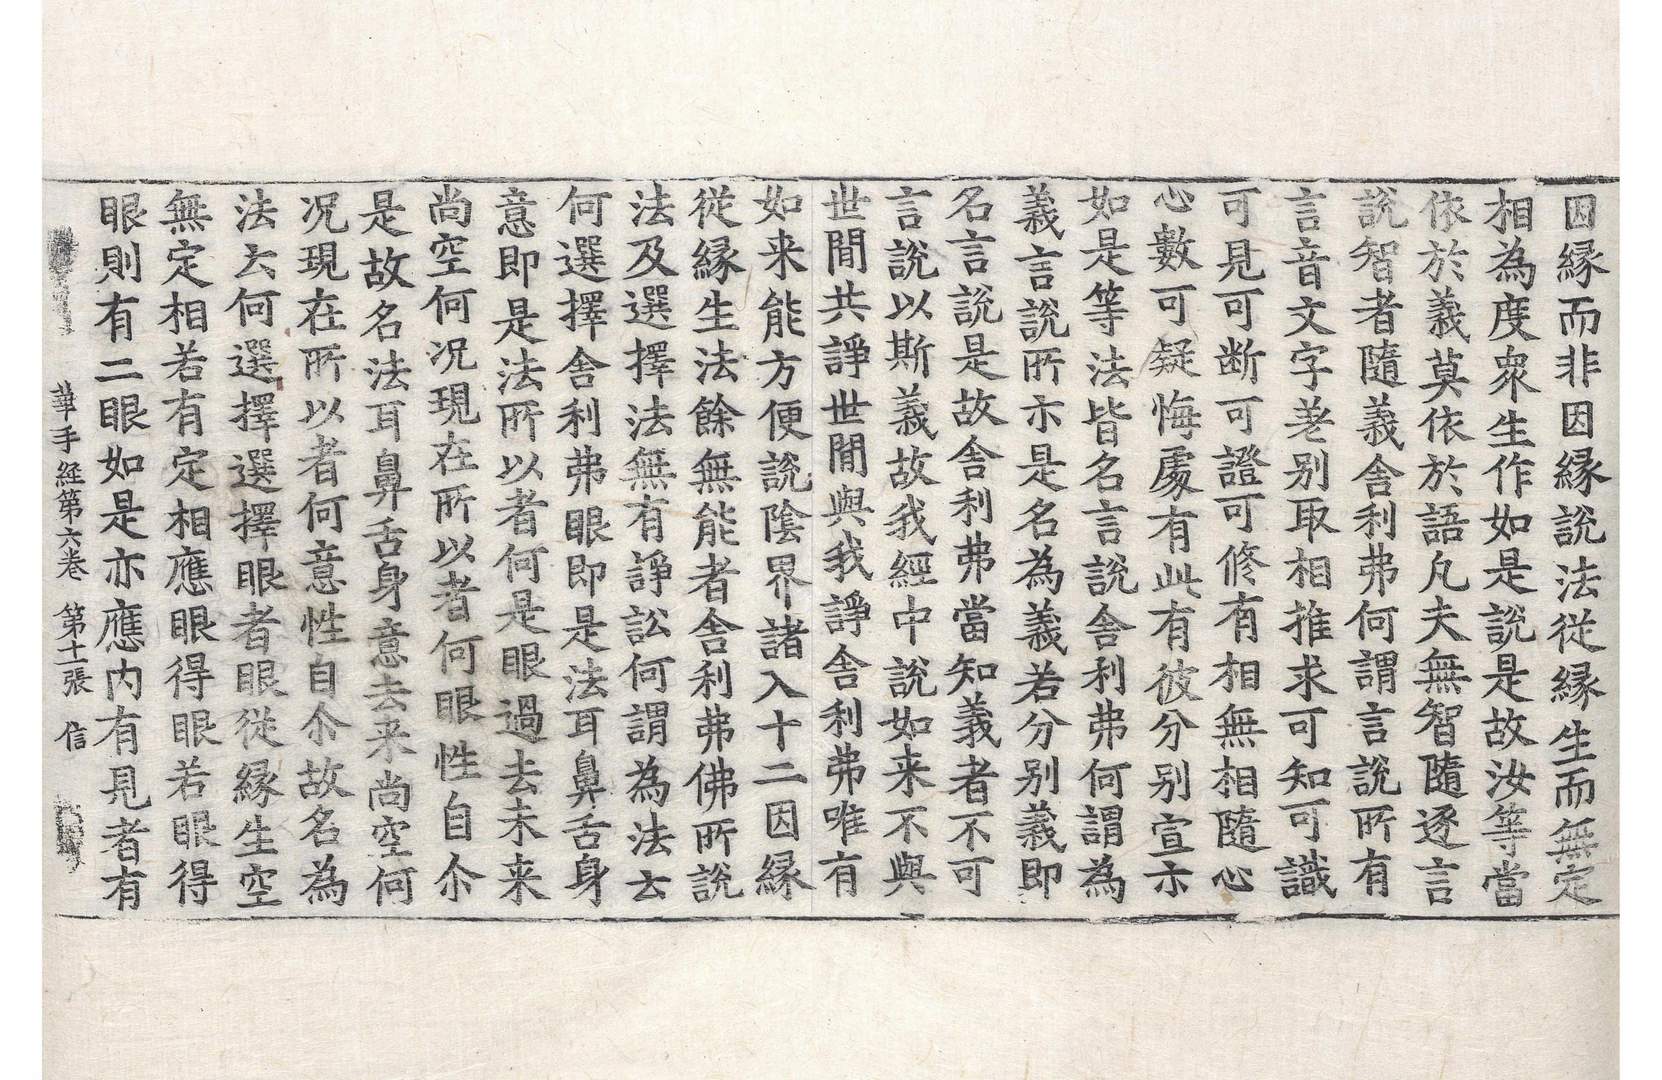 因緣而非因緣說法從緣生而無定
相為度衆生作如是說是故汝等當
依於義莫依於語凡夫無智隨逐言
說智者隨義舍利弗何謂言說所有
言音文字差别取相推求可知可識
可見可断可證可修有相無相隨心
心數可疑悔處有此有彼分别宣示
如是等法皆名言說舍利弗何謂為
義言說所示是名為義若分别義即
名言說是故舍利弗當知義者不可
言說以斯義故我經中說如来不與
世間共諍世間與我諍舍利弗唯有
如来能方便說陰界諸入十二因緣
從緣生法餘無能者舍利弗佛所說
法及選擇法無有諍訟何謂為法云
何選擇舍利弗眼即是法耳鼻舌身
意即是法所以者何是眼過去未来
尚空何况現在所以者何眼性自尒
是故名法耳鼻舌身意去来尚空何
况現在所以者何意性自尒故名為
法云何選擇選擇眼者眼從緣生空
無定相若有定相應眼得眼若眼得
眼則有二眼如是亦應内有見者有
華手経第六卷 第十一張 信